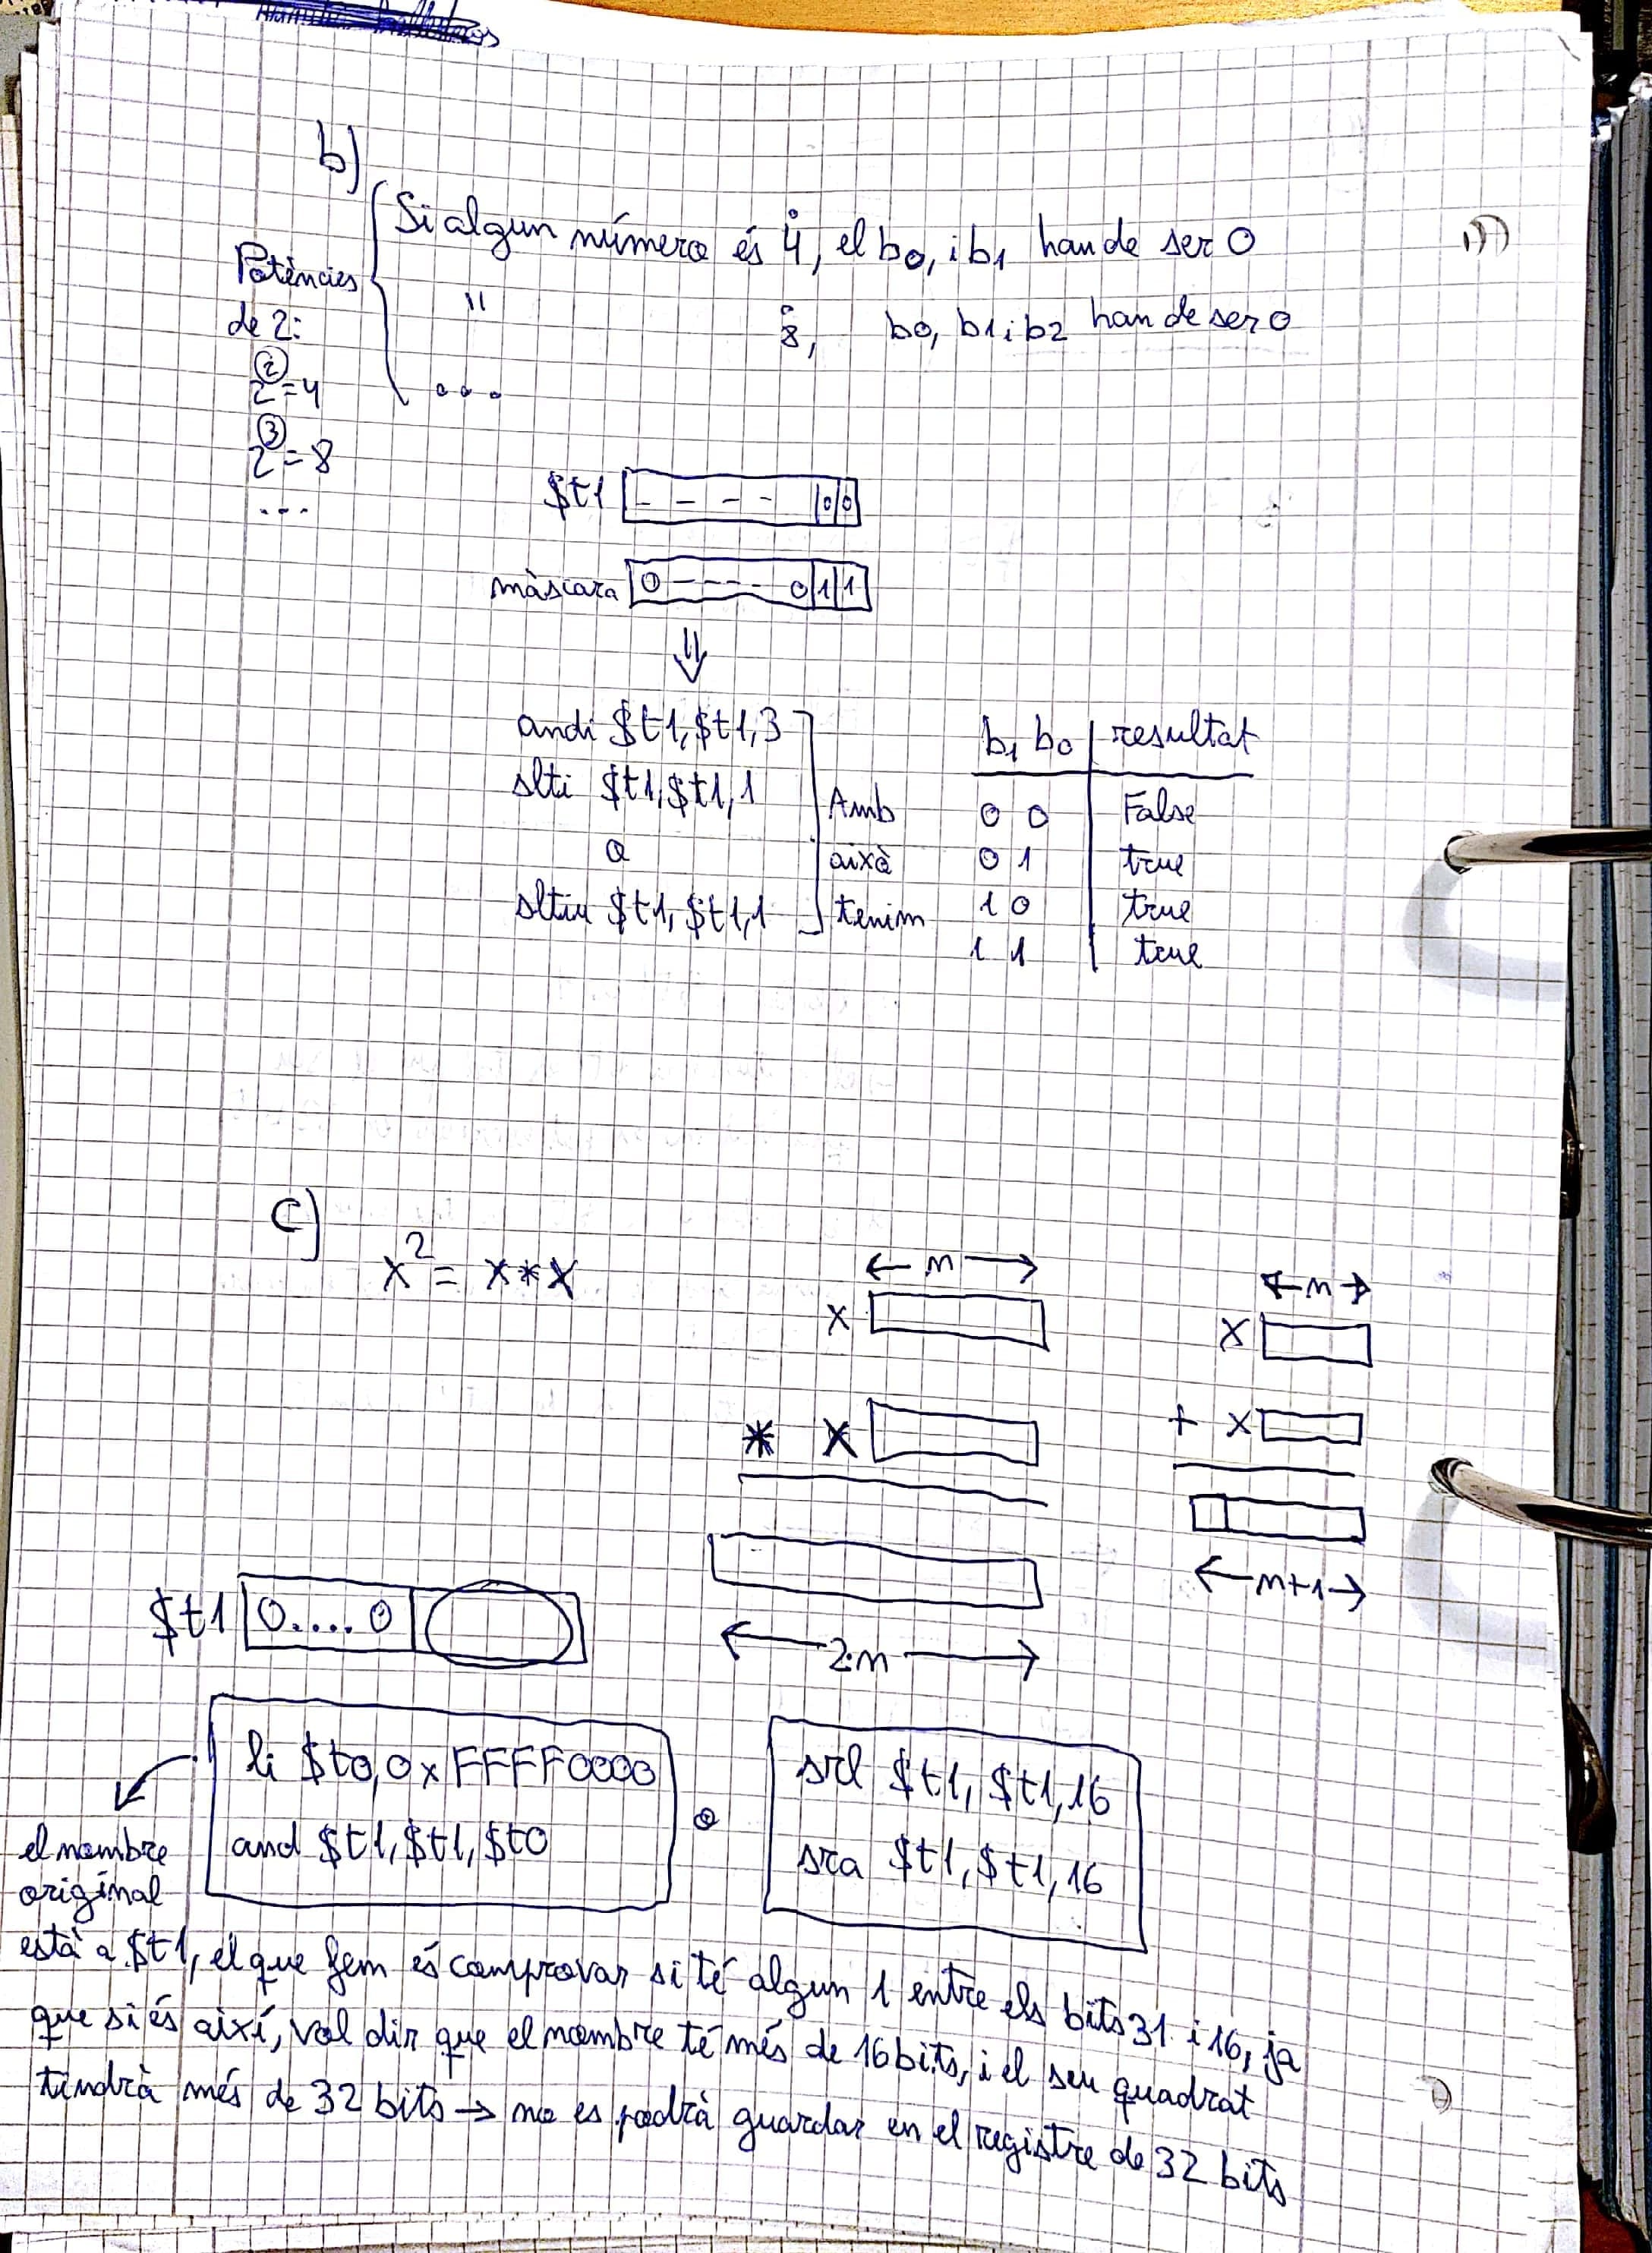 b)
Si algun número és 4̊, el b0, i b1 han de ser 0
" 8̊, b0, b1 i b2 han de ser 0
...
Potències
de 2:
2²=4
2³=8
...
$t1 - - - - 0 0
màscara 0 ---- 0 1 1
⇓
andi $t1,$t1,3
slti $t1,$t1,1
o
sltiu $t1,$t1,1
Amb
això
tenim
b1 b0 resultat
0 0 False
0 1 true
1 0 true
1 1 true
c)
x² = x*x
← n →
x
* x
← 2·n →
← n →
x
+ x
← n+1 →
$t1 0....0
li $t0,0xFFFF0000
and $t1,$t1,$t0
o
srl $t1,$t1,16
sra $t1,$t1,16
el nombre
original
està a $t1, el que fem és comprovar si té algun 1 entre els bits 31 i 16, ja
que si és així, vol dir que el nombre té més de 16 bits, i el seu quadrat
tindrà més de 32 bits → no es podrà guardar en el registre de 32 bits